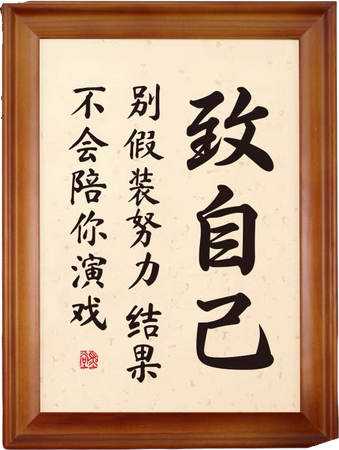 致自己
别假装努力 结果
不会陪你演戏